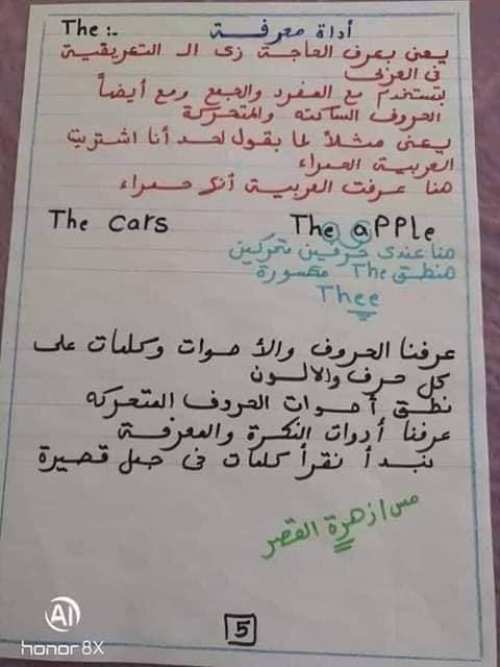 The :- أداة معرفة
يعنى بعرف الحاجة زى الـ التعريفية
فى العربى
بتستخدم مع المفرد والجمع ومع أيضاً
الحروف الساكنه والمتحركة
يعنى مثلاً لما بقول لحد أنا اشتريت
العربية الحمراء
هنا عرفت العربية أنها حمراء
The cars The apple
هنا عندى حرفين متحركين
هنطق The مكسورة
Thee
عرفنا الحروف والأصوات وكلمات على
كل حرف والالوان
نطق أصوات الحروف المتحركه
عرفنا أدوات النكرة والمعرفة
نبدأ نقرأ كلمات فى جمل قصيرة
مس / زهرة القصر
5
AI
honor 8X